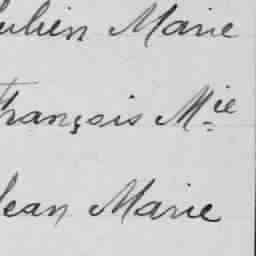 Julien Marie
François Mie
Jean Marie